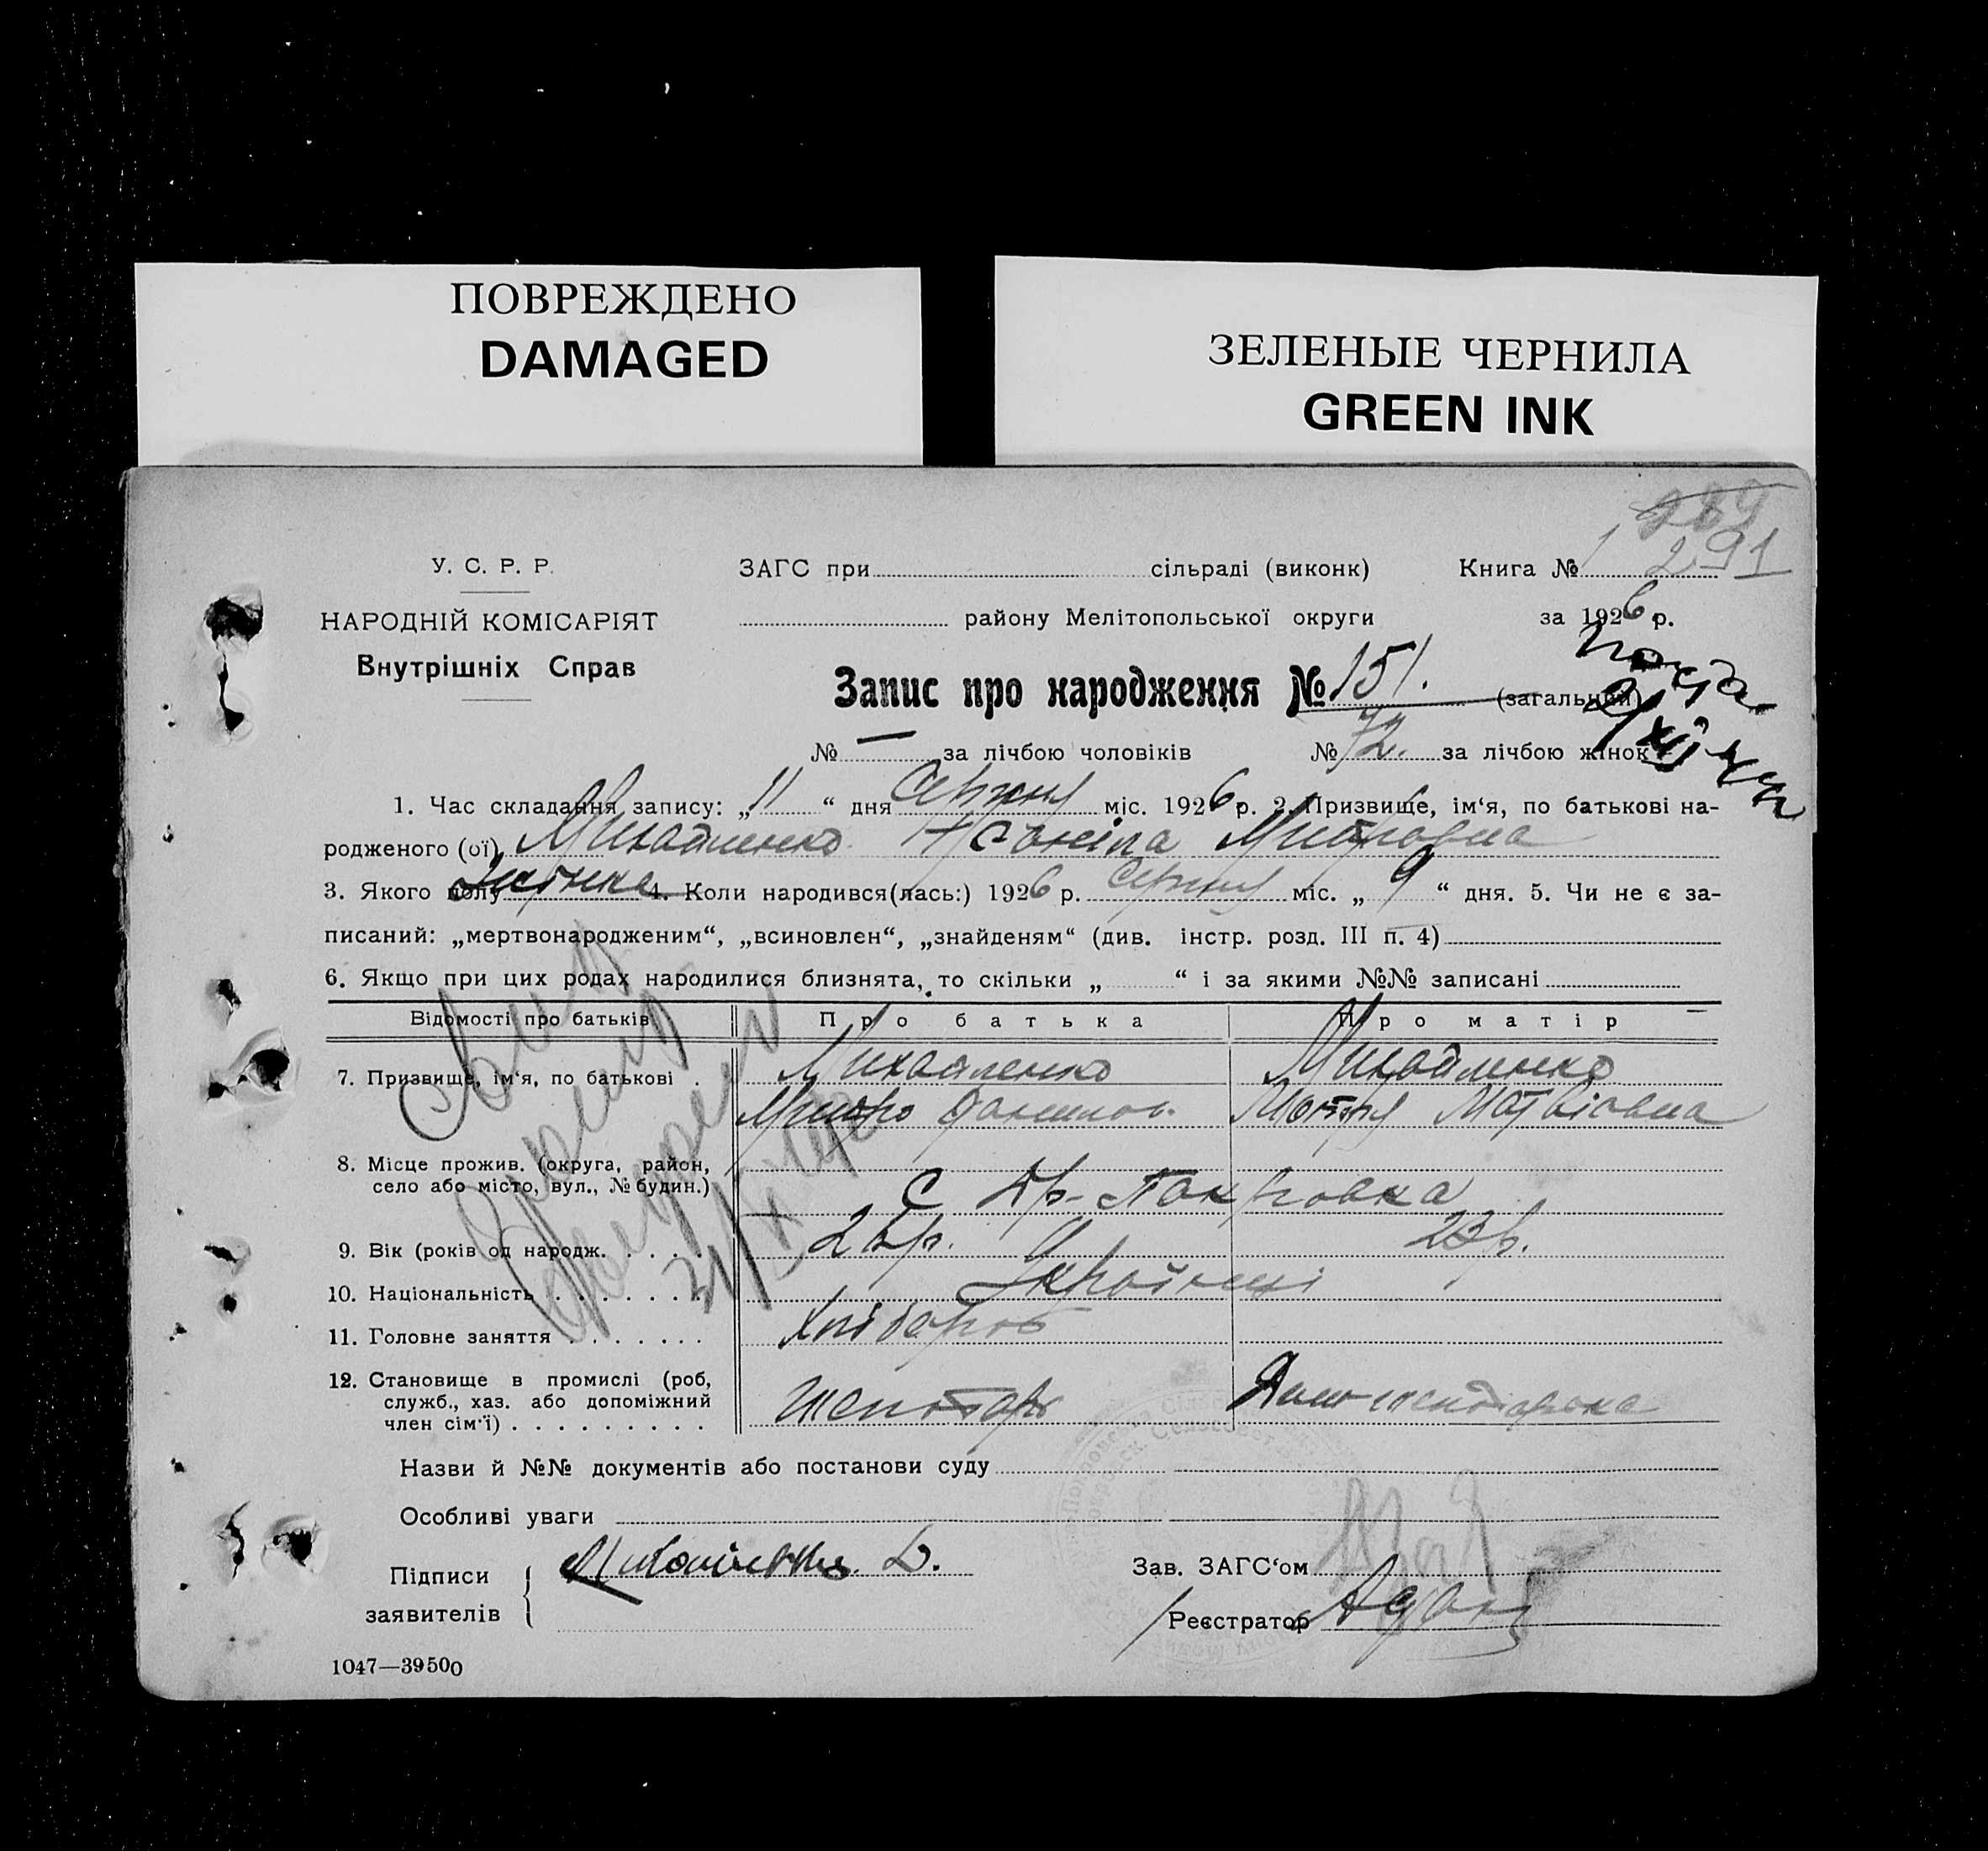 ПОВРЕЖДЕНО
DAMAGED
ЗЕЛЕНЫЕ ЧЕРНИЛА
GREEN INK
289
291
У. С. Р. Р.
НАРОДНІЙ КОМІСАРІЯТ
Внутрішніх Справ
ЗАГС при сільраді (виконк)
Книга № 1
району Мелітопольської округи
за 1926 р.
Запис про народження № 151. (загальний)
№ — за лічбою чоловіків № 72. за лічбою жінок
1. Час складання запису: „11“ дня Серпня міс. 1926 р. 2. Призвище, ім‘я, по батькові на-
родженого (ої) Михайленко Митровна
3. Якого полу жінка 4. Коли народився(лась:) 1926 р. Серпня міс. „9“ дня. 5. Чи не є за-
писаний: „мертвонародженим“, „всиновлен“, „знайденям“ (див. інстр. розд. III п. 4)
6. Якщо при цих родах народилися близнята, то скільки „ “ і за якими №№ записані
Відомості про батьків. Про батька Про матір
7. Призвище, ім‘я, по батькові . Михайленко Михайленко
Митро Данилов. Мотря Матвіовна
8. Місце прожив. (округа, район,
село або місто, вул., № будин.)
С Нр-Покровка
9. Вік (років од народж. . . . . 26р. 23р.
10. Національність . . . . . . . Українці
11. Головне заняття . . . . . . . Хлібороб
12. Становище в промислі (роб,
служб., хаз. або допоміжний
член сім‘ї) . . . . . . . . .
Назви й №№ документів або постанови суду
Особливі уваги
Підписи
заявителів
Михайленко Д.
Зав. ЗАГС‘ом
Реєстратор
1047—39500